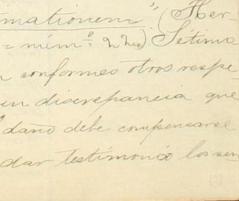 mationem" (Her-
= núm.º 22) Sétimo
conformes otros respe
in discrepancia que
daño debe compensarse
dar testimonio los sen